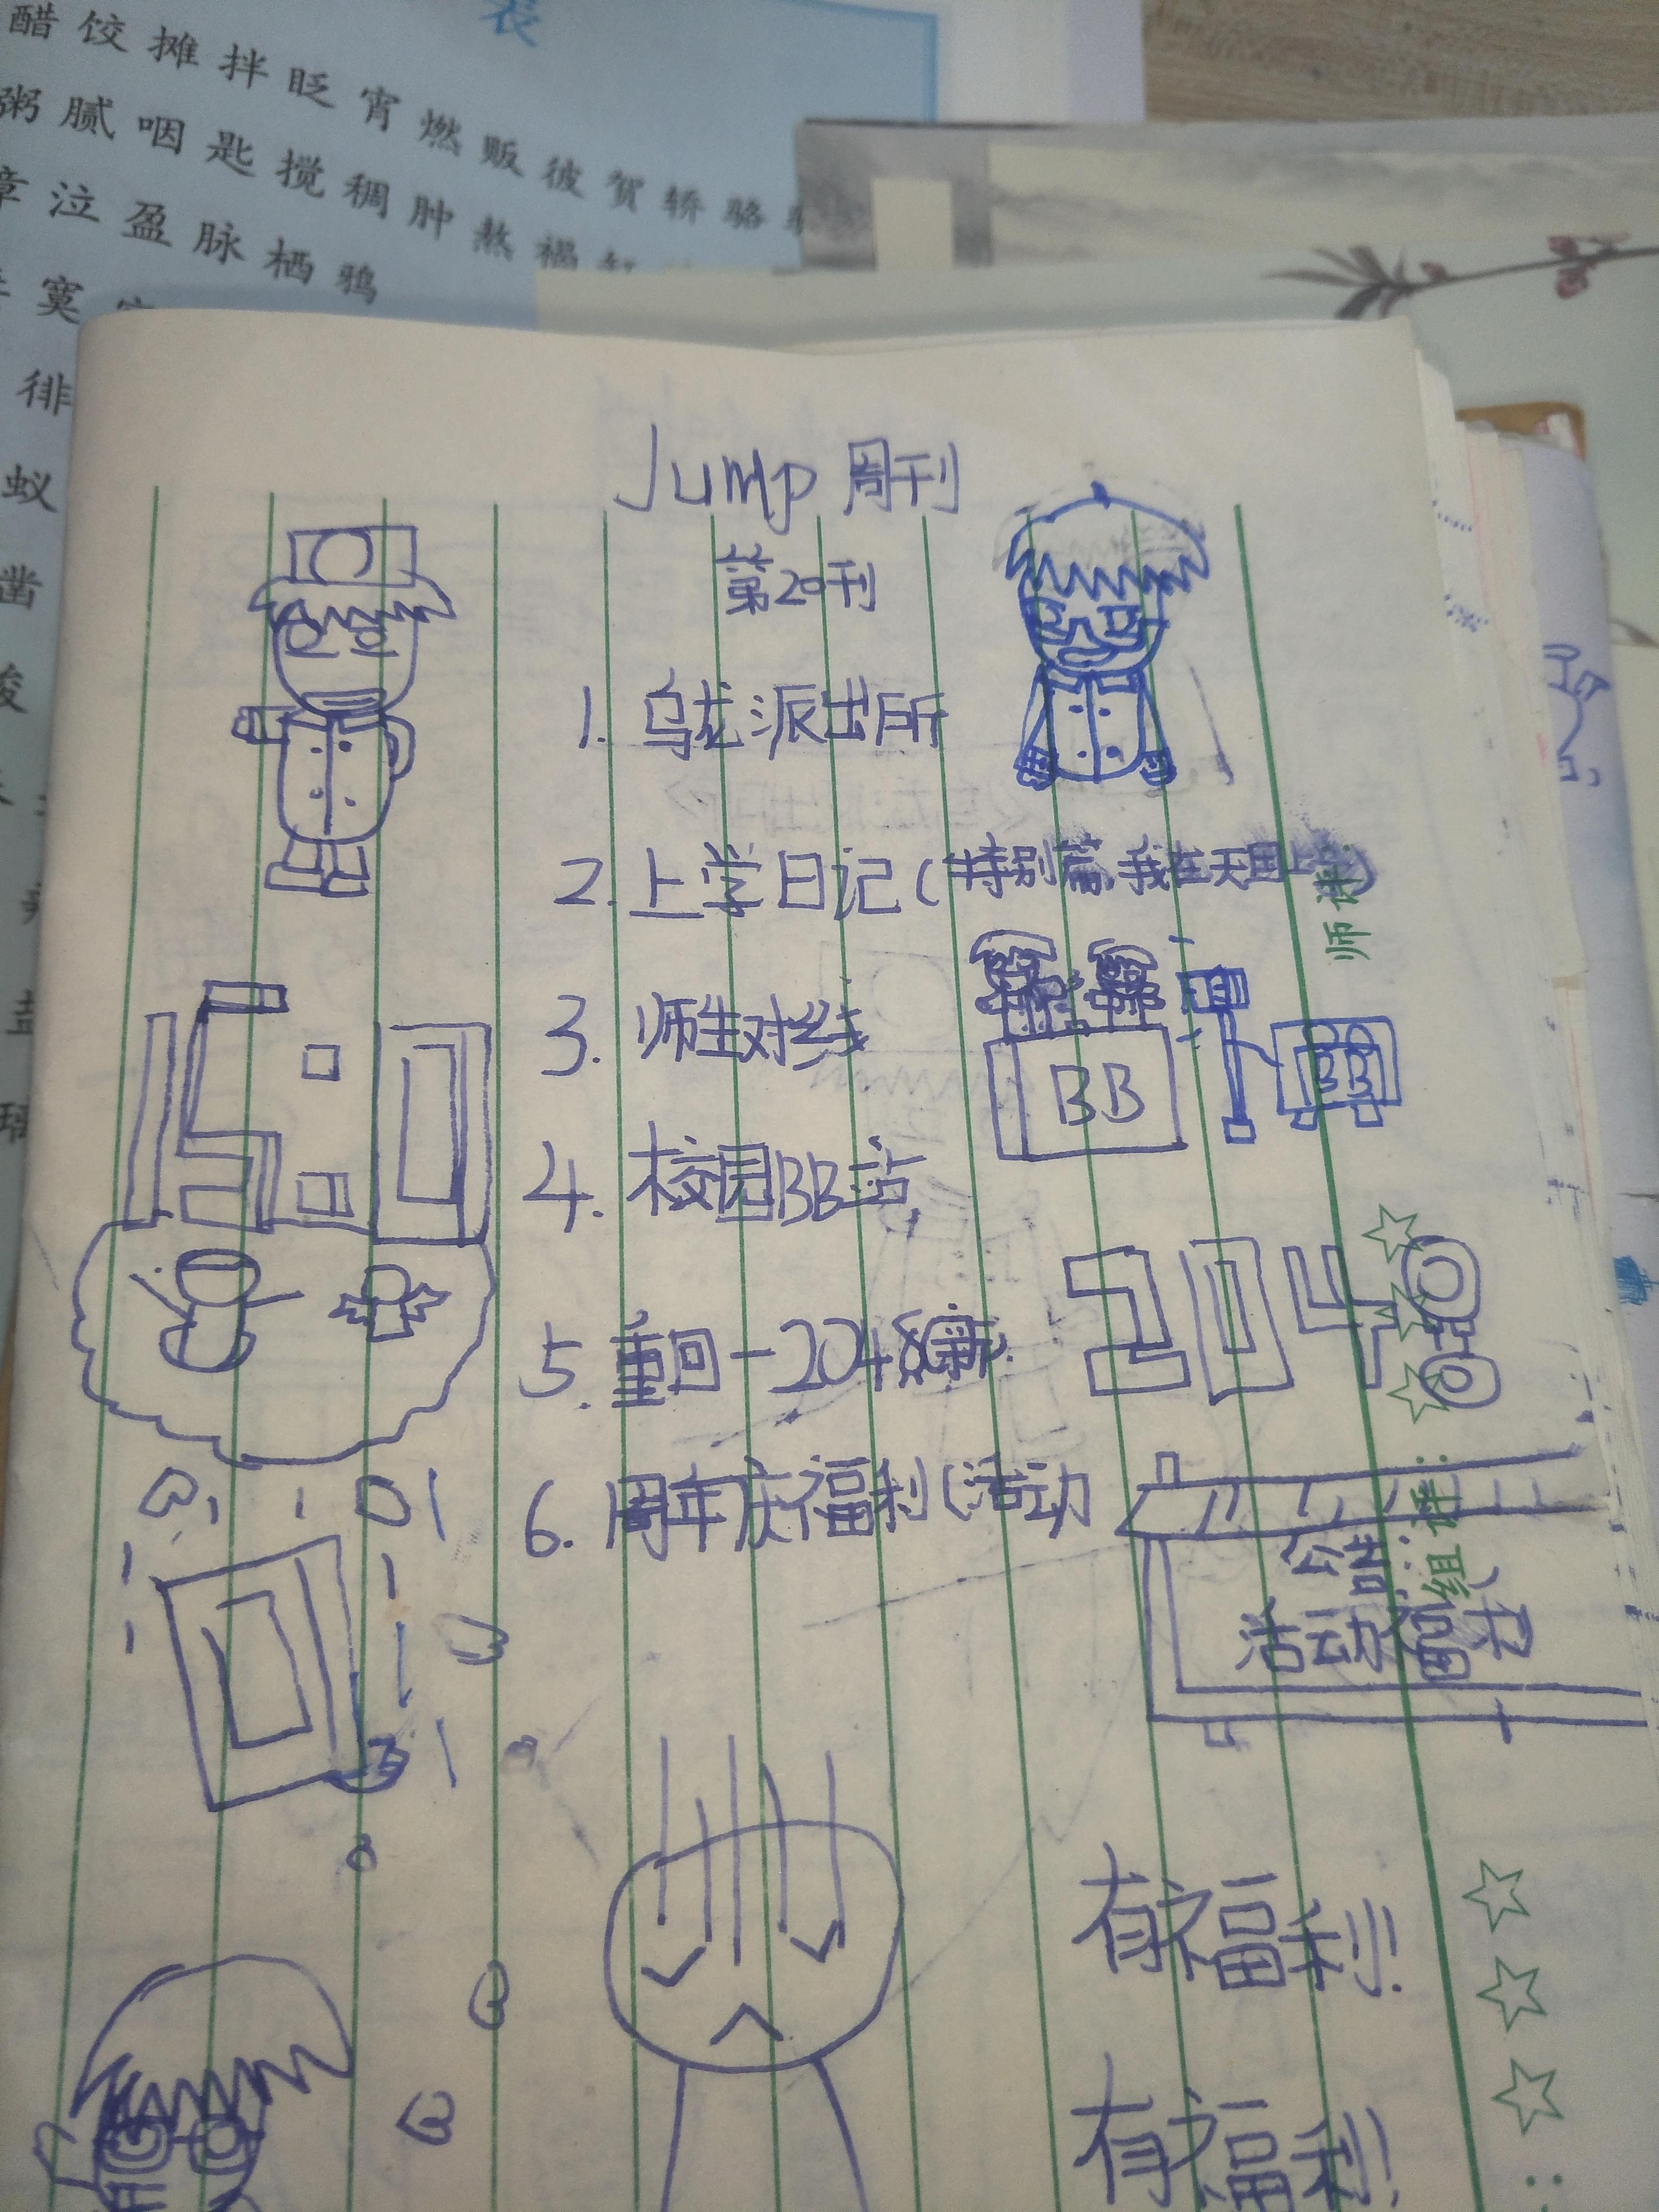 表
醋饺摊拌眨宵燃贩彼贺轿骆
粥腻咽匙搅稠肿熬褐
章泣盈脉栖鸦
寞
徘
蚁
凿
Jump 周刊
第20刊
1. 乌龙派出所
2. 上学日记(特别篇,我在天国上学)
3. 师生对线
BB
BB
4. 校园BB站
5. 重回一204
204
6. 周年庆福利(活动
公告
活动福利
有福利!
有福利!
师评:
组评: